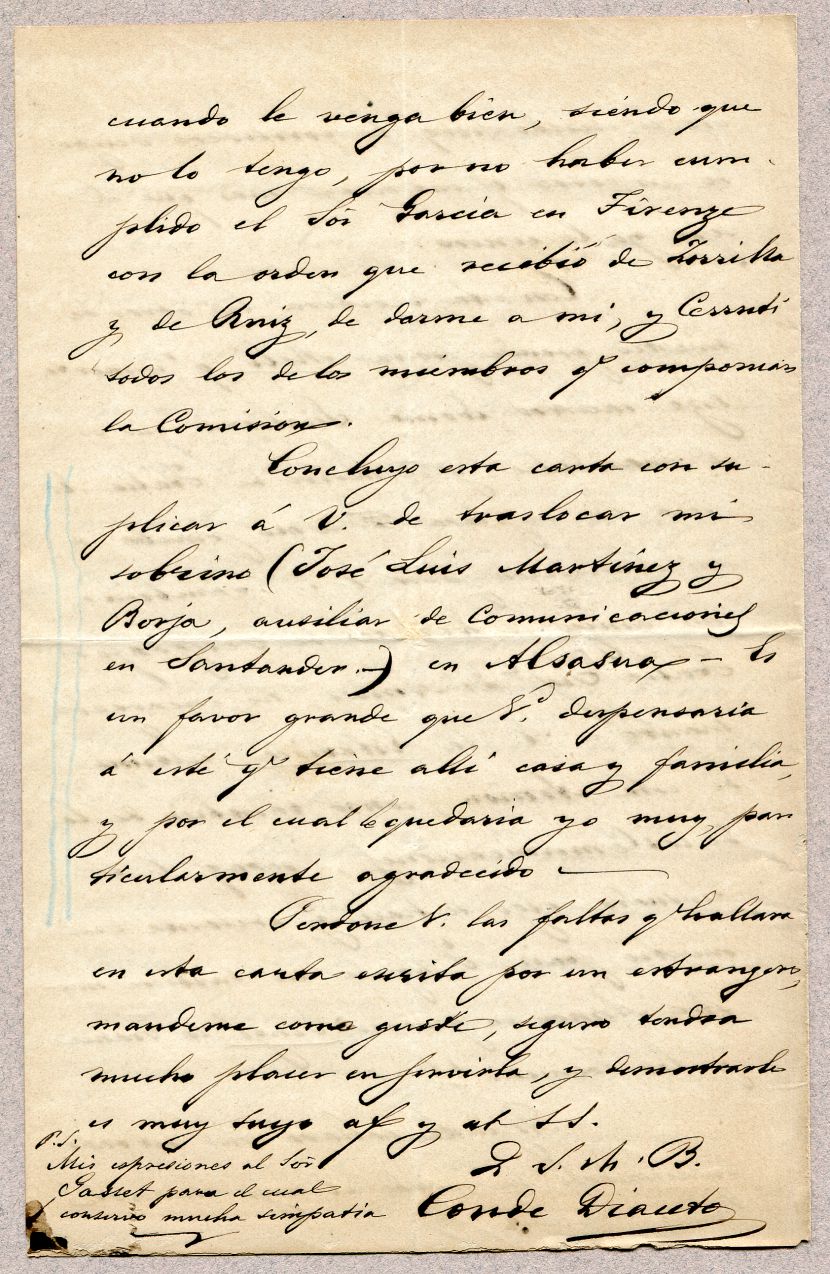 cuando le venga bien, siéndo que
no lo tengo, por no haber cum-
plido el Sor García en Firenze
con la orden que recibió de Zorrilla
y de Ruiz, de darme a mi, y Cerruti
todos los de los miémbros qe componian
la Comision.
Concluyo esta carta con su-
plicar á V. de traslocar mi
sobrino (José Luis Martinez y
Borja, ausiliar de Comunicaciones
en Santander.-) en Alsasua - Es
un favor grande que Vd. dispensaria
á esté qe tiene allí casa y familia,
y por el cual le quedaria yo muy, par-
ticularmente agradecido -
Perdone V. las faltas qe hallara
en esta carta escrita por un estrangero,
mandeme como guste, seguro tendra
mucho placer en servirla, y demostrarle
es muy suyo af y at S S.
Q S. M. B.
Conde Diaceto
P.S.
Mis espresiones al Sor
Gasset para el cual
conservo mucha simpatia